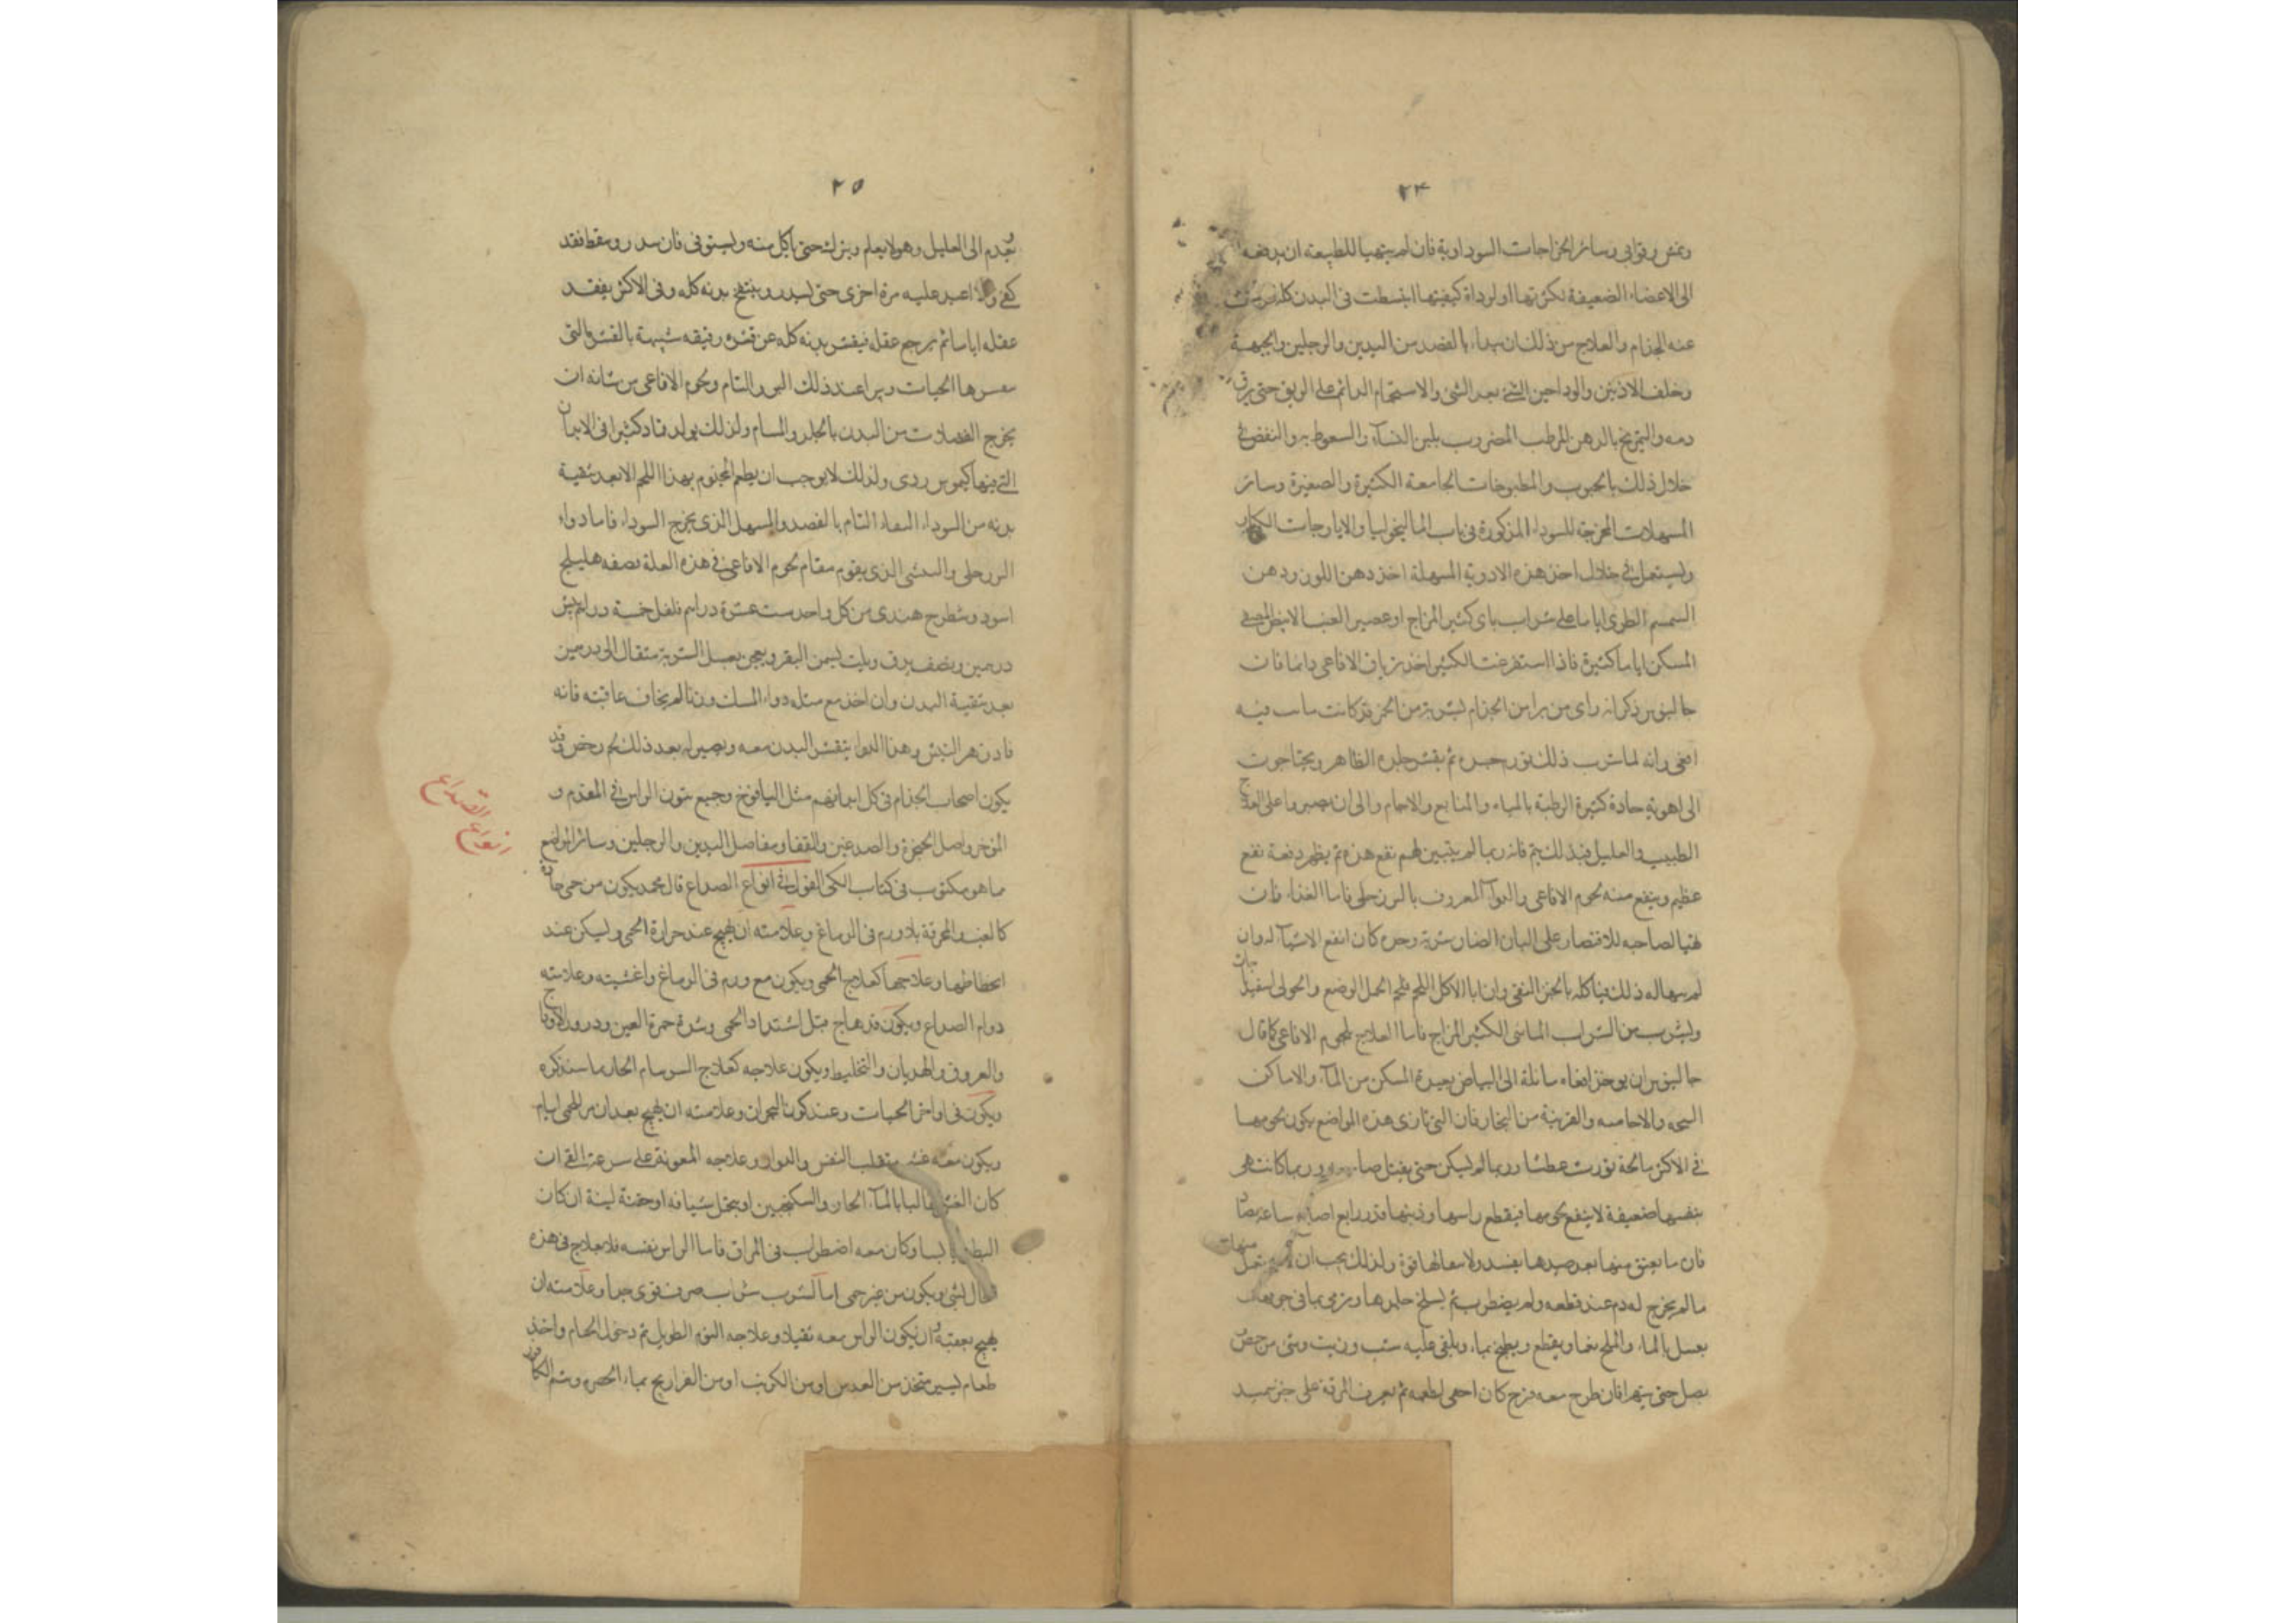 ٢٤
وسائر الخراجات السوداوية فان لم يتهيا للطبيعه ان يدفعه
الى الاعضاء الضعيفة لكثرتها او لرداة كيفيتها انبسطت فى البدن كله
عنه الجذام والعلاج من ذلك ان يبداء بالفصد من اليدين والرجلين والجبهة
وخلف الاذنين والوداجين الشئ بعد الشئ والاستحمام الدائم على الريق حتى يرق
دمه والتمريخ بالدهن المرطب المضروب بلبن النساء والسعوط به والنفض فى
خلال ذلك بالحبوب والمطبوخات الجامعة الكثيرة والصغيرة وسائر
المسهلات المخرجة للسوداء المذكورة فى باب الماليخوليا والايارجات الكبار
ويستعمل فى خلال اخذ هذه الادوية المسهلة اخذ دهن اللوز ودهن
السمسم الطرى اياما على شراب كثير المزاج او عصير العنب الابيض
المسكن اياما كثيرة فاذا استفرغت الكثير اخذ ترياق الافاعى دائما فان
جالينوس ذكر انه راى من برا من الجذام بشربة من الخمر قد كانت ماتت فيه
افعى وانه لما شرب ذلك تورم جسده ثم تقشر جلده الظاهر ويحتاجون
الى اهوية حادة كثيرة الرطبة بالمياه والمنابع والاجام والى ان يصبروا على العلاج
الطبيب والعليل فبذلك يتم فانه ربما لم يتبين لهم نفع هذه ثم يظهر دفعة نفع
عظيم وينفع منه لحوم الافاعى والدواء المعروف بالبزرجلى فاما الغذاء فان
تهيا لصاحبه للاقتصار على البان الضان شربه وحده كان انفع الاشياء له وان
لم يتهيا له ذلك فياكله بالخبز النقى وان ابا الا اكل اللحم فلحم الحمل الرضيع والحولى
ويشرب من الشراب المائى الكثير المزاج فاما العلاج بلحوم الافاعى كما قال
جالينوس ان يوخذ افعاء مائلة الى البياض بعيدة المسكن من الماء والاماكن
والقريبة من البخار فان التى تاوى هذه المواضع يكون لحومها
فى الاكثر مالحة تورث عطشا وربما لم يسكن حتى يقتل وربما كانت هى
بنفسها ضعيفة لا ينفع لحومها فيقطع راسها وذنبها قدر اربع اصابع ساعة يصاد
فان ما يعتق منها بعد صيدها يفسد ولا معالها قوة ولذلك يجب ان لا يستعمل منها
ما لم يخرج له دم عند قطعه ولم يضطرب ثم يسلخ جلدها ويرمى بما فى جوفها
يغسل بالماء والملح نعما ويقطع ويطبخ بماء ويلقى عليه شبت وزيت وشئ من حمص
بصل حتى يتهرا فان طرح معه فرج كان احمى لطعمه ثم يعرف المرقة على خبز سميد
٢٥
يقدم الى العليل وهو لا يعلم ويترك حتى ياكل منه ويستوفى فان سدر وسقط فقد
كفى والا اعيد عليه مرة اخرى حتى يسدر وينتفخ بدنه كله وفى الاكثر يفقد
عقله اياما ثم يرجع عقله فيقشر بدنه كله عن قشره رقيقه شبيهة بالقشور التى
الحيات ويبرا عند ذلك البرو التام ولحوم الافاعى من شانه ان
يخرج الفضلات من البدن بالجلد والمسام ولذلك يولد قملا كثيرا فى الابدان
التى فيها كيموس ردى ولذلك لا يوجب ان يطعم المجذوم بهذا اللحم الا بعد تنقية
بدنه من السوداء النقاء التام بالفصد والمسهل الذى يخرج السوداء فاما دواء
البزرجلى والبيشى الذى يقوم مقام لحوم الافاعى فى هذه العلة نصفه هليلج
اسود وشطرج هندى من كل واحد ستة عشرة دراهم فلفل خمسة دراهم بيش
درهمين ونصف يدق ويلت بسمن البقر ويعجن بعسل الشربة مثقال الى درهمين
بعد تنقية البدن وان اخذ مع مثله دواء المسك وزنا لم يخاف عاقبته فانه
فاد زهر البيش وهذا الدواء يتقشر البدن معه ويصير له بعد ذلك لحم رخص وقد
يكون اصحاب الجذام فى كل ابدانهم مثل اليافوخ وجميع شون الراس فى المقدم و
الموخر واصل الحنجرة والصدغين والقفا ومفاصل اليدين والرجلين وسائر المواضع
ما هو مكتوب فى كتاب الكى القول فى انواع الصداع قال محمد يكون من حمى حادة
كالغب والمحرقة بلا ورم فى الدماغ وعلامته ان يهيج عند حرارة الحمى ويسكن عند
انحطاطها وعلاجها كعلاج الحمى ويكون مع ورم فى الدماغ واغشيته وعلامته
دوام الصداع ويكون قد هاج قبل اشتداد الحمى وشدة حمرة العين ودرور الاوداج
والعروق والهذيان والتخليط ويكون علاجه كعلاج السرسام الحار ما سنذكره
ويكون فى اواخر الحميات وعند كون البحران وعلامته ان يهيج بعد ان مر للحمى ايام
ويكون معه غثى وتقلب النفس والدوار وعلاجه المعونة على سرعة القى ان
كان الغثى غالبا بالماء الحار والسكنجبين او يتحمل شيافه او حقنة لينة ان كان
البطن يابسا وكان معه اضطراب فى المراق فاما الراس نفسه فلا يعالج فى هذه
الحال بشى ويكون من غير حمى اما لشرب شراب صرف قوى جدا وعلامته ان
يهيج بعقبه وان يكون الراس معه ثقيلا وعلاجه النوم الطويل ثم دخول الحمام واخذ
طعام يسير متخذ من العدس او من الكرنب او من الفراريج بماء الحصرم وشم الكافور
انواع الصداع